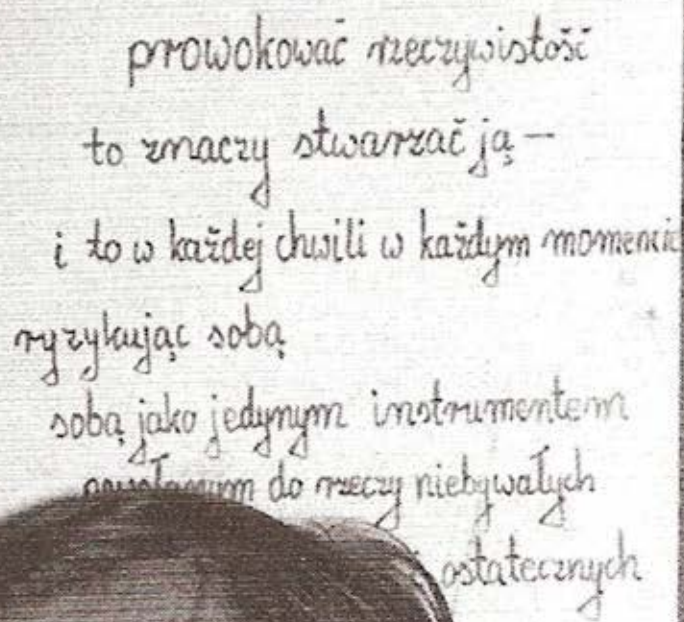 prowokować rzeczywistość
to znaczy stwarzać ją —
i to w każdej chwili w każdym momencie
ryzykując sobą
sobą jako jedynym instrumentem
do rzeczy niebywałych
ostatecznych